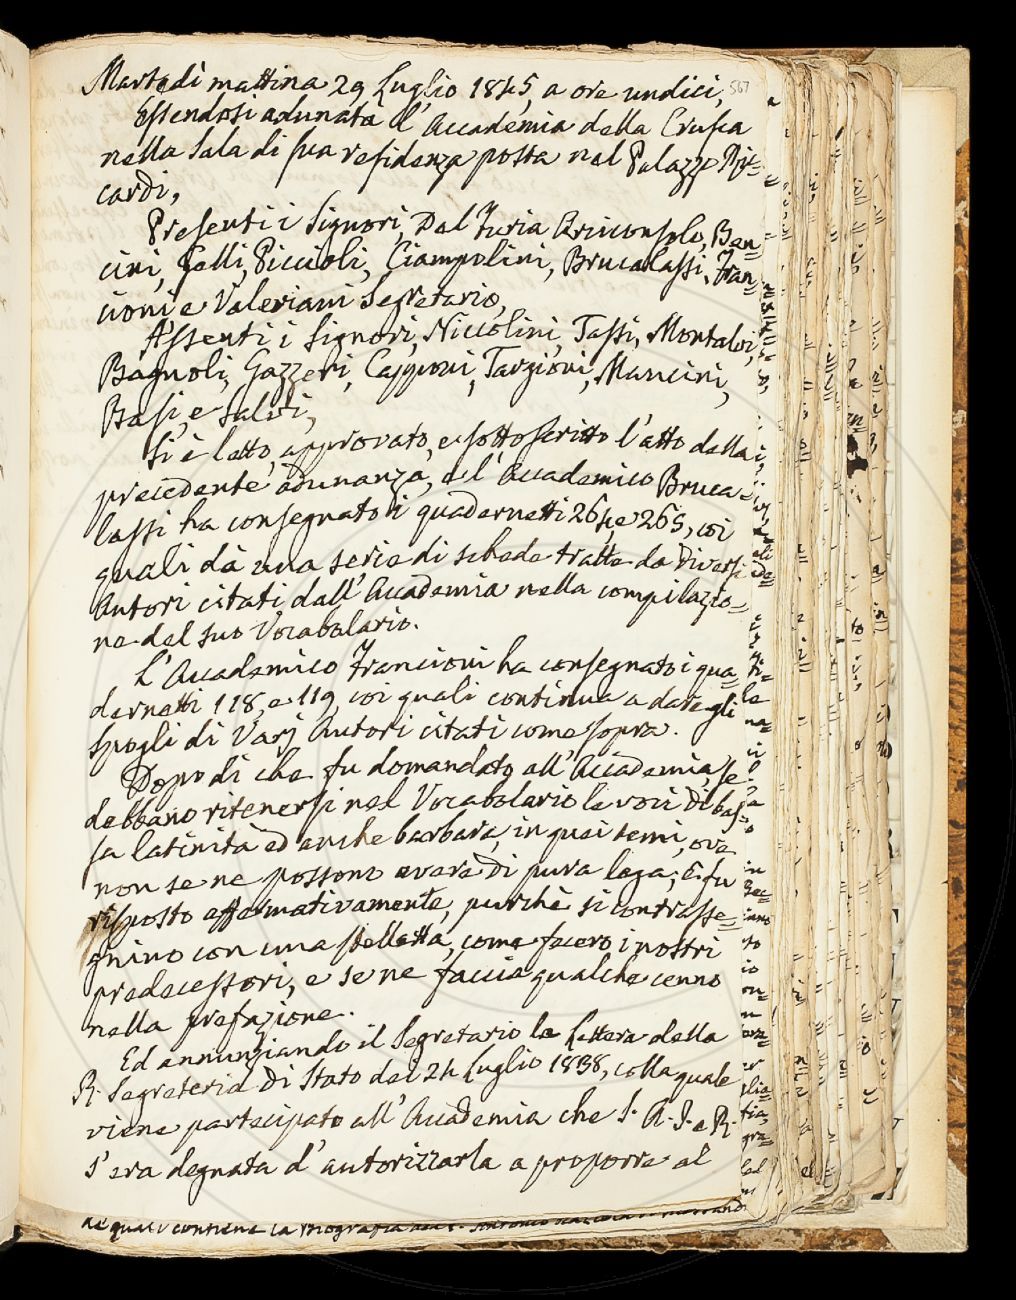 567
Martedì mattina 29 Luglio 1845, a ore undici,
Essendosi adunata l'Accademia della Crusca
nella Sala di sua residenza posta nel Palazzo Ric=
cardi,
Presenti i Signori, Del Furia Arciconsolo, Ben=
cini, Gelli, Piccioli, Ciampolini, Brucalassi, Fran=
cioni e Valeriani Segretario,
Assenti i Signori, Niccolini, Tassi, Montalvi,
Bagnoli, Gazzeri, Capponi, Targioni, Mancini,
Basi, e Salvi,
Si è letto, approvato, e sottoscritto l'atto della
precedente adunanza, e l'Accademico Bruca=
lassi ha consegnato i quadernetti 264, e 265, coi
quali dà una serie di schede tratte da diversi
Autori citati dall'Accademia nella compilazio=
ne del suo Vocabolario.
L'Accademico Francioni ha consegnato i qua=
dernetti 118, e 119, coi quali continua a dare gli
spogli di Varj Autori citati come sopra.
Dopo di che fu domandato all'Accademia, se
debbano ritenersi nel Vocabolario le voci di bas=
sa latinità ed anche barbara, in quei temi, ove
non se ne possono avere di pura lega; E fu
risposto affermativamente, purchè si contrasse=
gnino con una stelletta, come fecero i nostri
predecessori, e se ne faccia qualche cenno
nella prefazione.
Ed annunziando il Segretario la Lettera della
R. Segreteria di Stato del 24 Luglio 1838, colla quale
viene partecipato all'Accademia che S. A. I. e R.
s'era degnata d'autorizzarla a proporre al
contiene la Biografia